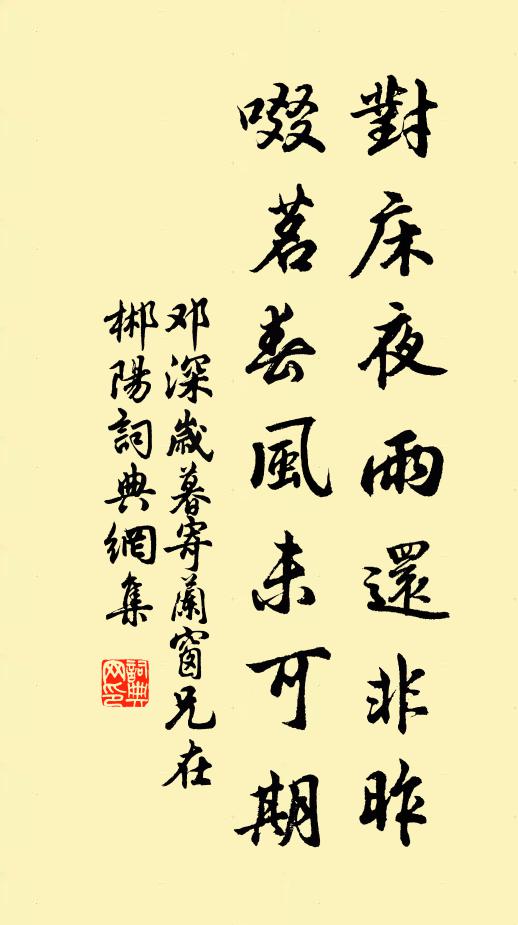 對床夜雨還非昨
啜茗春風未可期
邓深歲暮寄蘭窗兄在
郴陽詞典網集
詞典網印